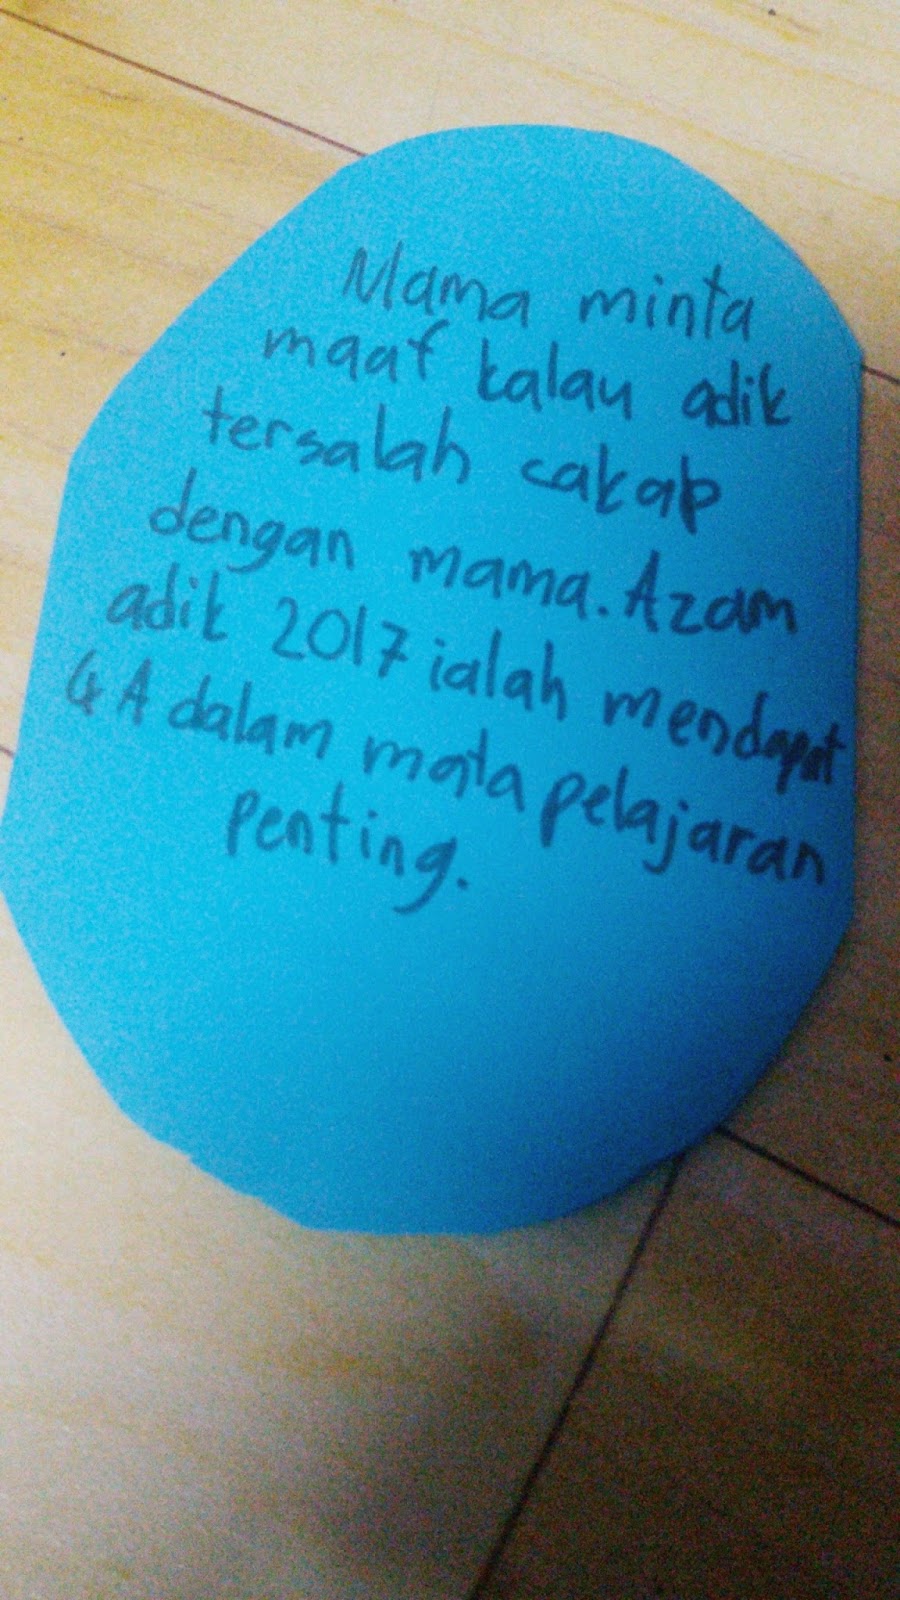 Mama minta
maaf kalau adik
tersalah cakap
dengan mama. Azam
adik 2017 ialah mendapat
4 A dalam mata pelajaran
penting.